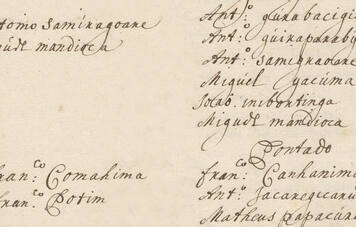 tomo samiragoare
guel mandioca
fran:co Comahima
fran:co Potim
Ant:o guirabacigi
Ant:o guiraparaby
Ant:o samiragoare
Miguel yacúma
João inibortinga
Miguel mandioca
Pontado
fran:co Canhanima
Ant:o Jacareguaru
Matheus Papacura